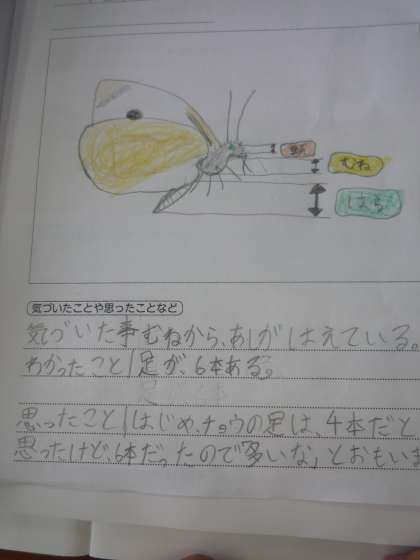 頭
むね
はら
気づいたことや思ったことなど
気づいた事むねから、あしがはえている。
わかったこと｜足が、6本ある。
思ったこと｜はじめ、チョウの足は、4本だと
思ったけど、6本だったので「多いな」とおもいま